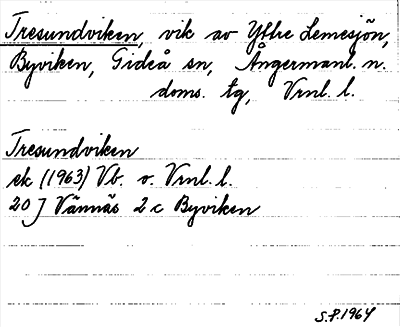 Tresundviken, vik av Yttre Lemesjön,
Byviken, Gideå sn, Ångermanl. n.
doms. tg, Vrnl. l.
Tresundviken
ek (1963) Vb. o. Vrnl. l.
20 J Vännäs 2 c Byviken
S.P. 1964